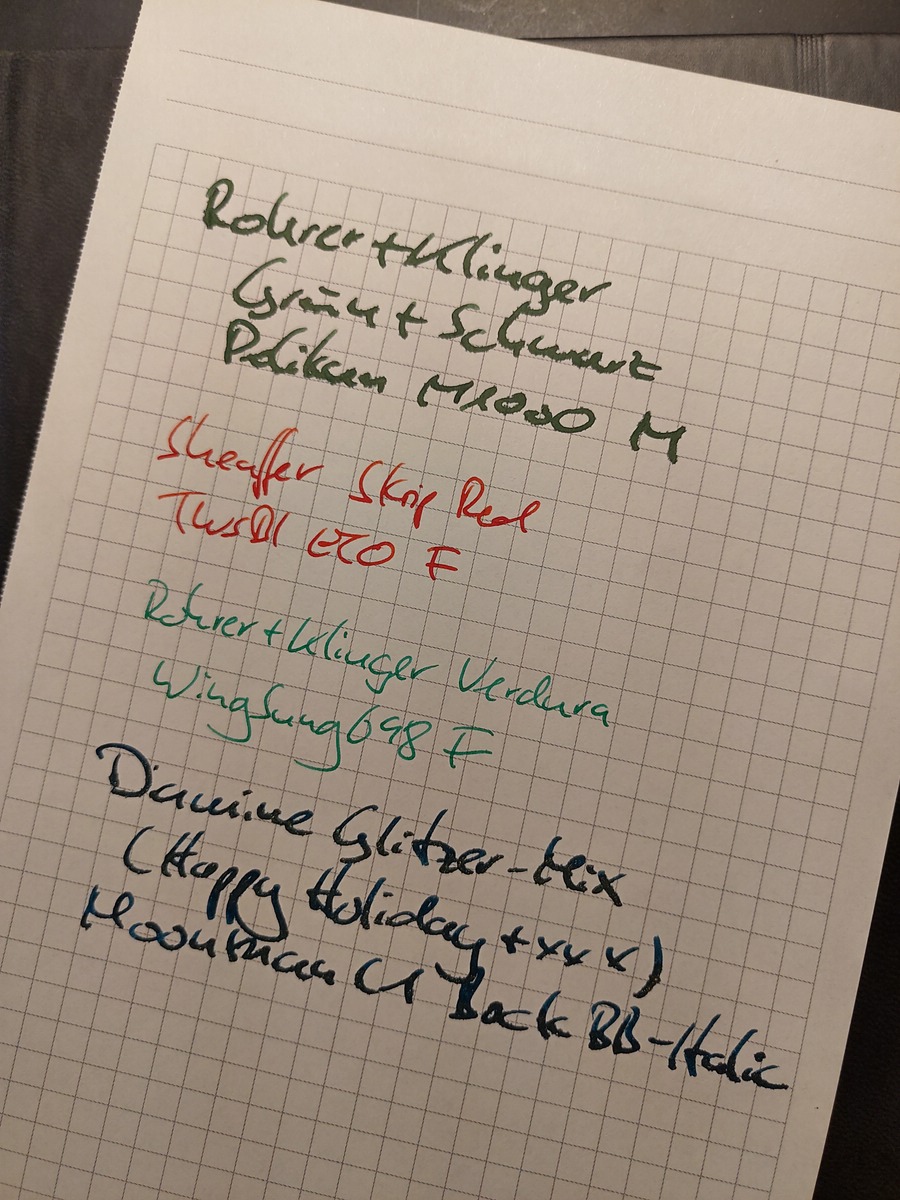 Rohrer+Klinger
Grün + Schwarz
Pelikan M1000 M
Sheaffer Skrip Red
TWSBI ECO F
Rohrer+Klinger Verdura
WingSung 698 F
Diamine Glitzer-Mix
(Happy Holiday + xxx)
Moonman C1 Bock BB-Italic